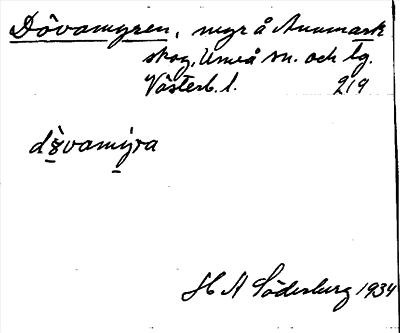 Dövamyren, myr å Anumark
skog, Umeå sn. och tg.
Västerb. l. 219
dö̀vamyra
H A Söderburg 1934